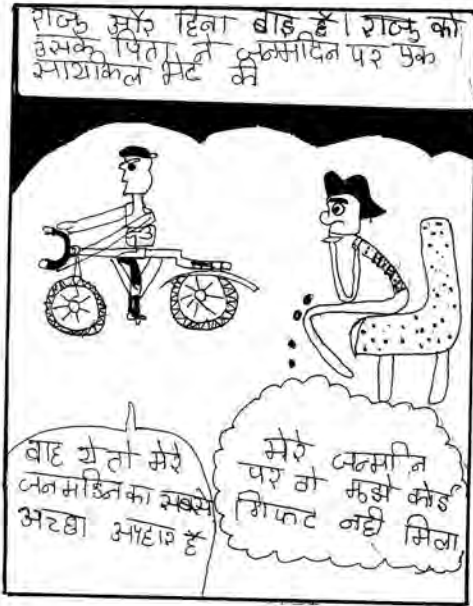 राजु और हिना बाइ है। राजु को
उसके पिता ने जनमदिन पर एक
सायकिल भेट की
वाह ये तो मेरे
जनमदिन का सबसे
अच्छा उपहार है
मेरे जन्मदिन
पर तो मुझे कोई
गिफट नही मिला